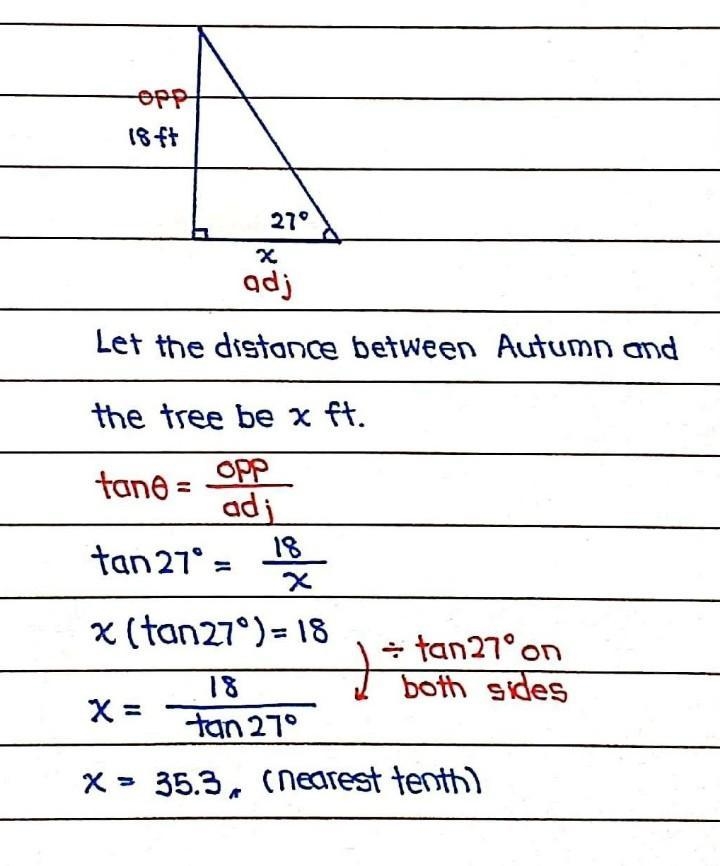 opp
18 ft
27°
x
adj
Let the distance between Autumn and
the tree be x ft.
tanθ = opp
adj
tan 27° = 18
x
x (tan27°) = 18
÷ tan27° on
both sides
x = 18
tan 27°
x = 35.3 (nearest tenth)